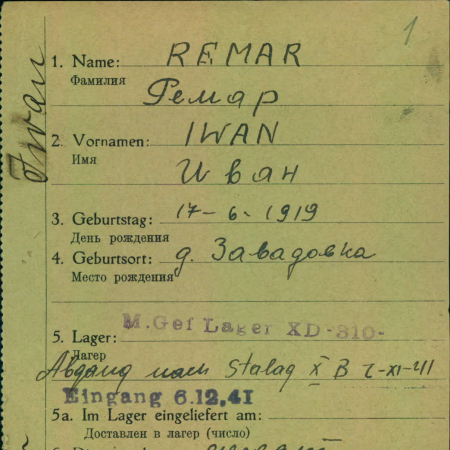 1
Iwan
1. Name: REMAR
Фамилия
Ремар
2. Vornamen: IWAN
Имя
Иван
3. Geburtstag: 17-6-1919
День рождения
4. Geburtsort: д. Завадовка
Место рождения
M.Gef Lager XD-310-
5. Lager:
Лагер
Abgang nach Stalag X B -XI-41
Eingang 6.12.41
5a. Im Lager eingeliefert am:
Доставлен в лагер (число)